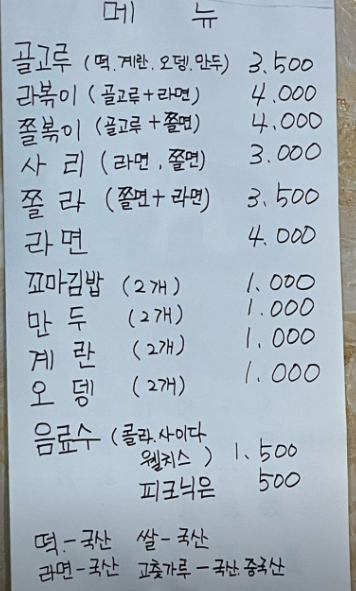 메 뉴
골고루 (떡.계란.오뎅.만두) 3.500
라볶이 (골고루+라면) 4.000
쫄볶이 (골고루+쫄면) 4.000
사 리 (라면, 쫄면) 3.000
쫄 라 (쫄면+라면) 3.500
라면 4.000
꼬마김밥 (2개) 1.000
만 두 (2개) 1.000
계 란 (2개) 1.000
오 뎅 (2개) 1.000
음료수 (콜라.사이다
웰치스 ) 1.500
피크닉은 500
떡-국산 쌀-국산
라면-국산 고춧가루-국산.중국산